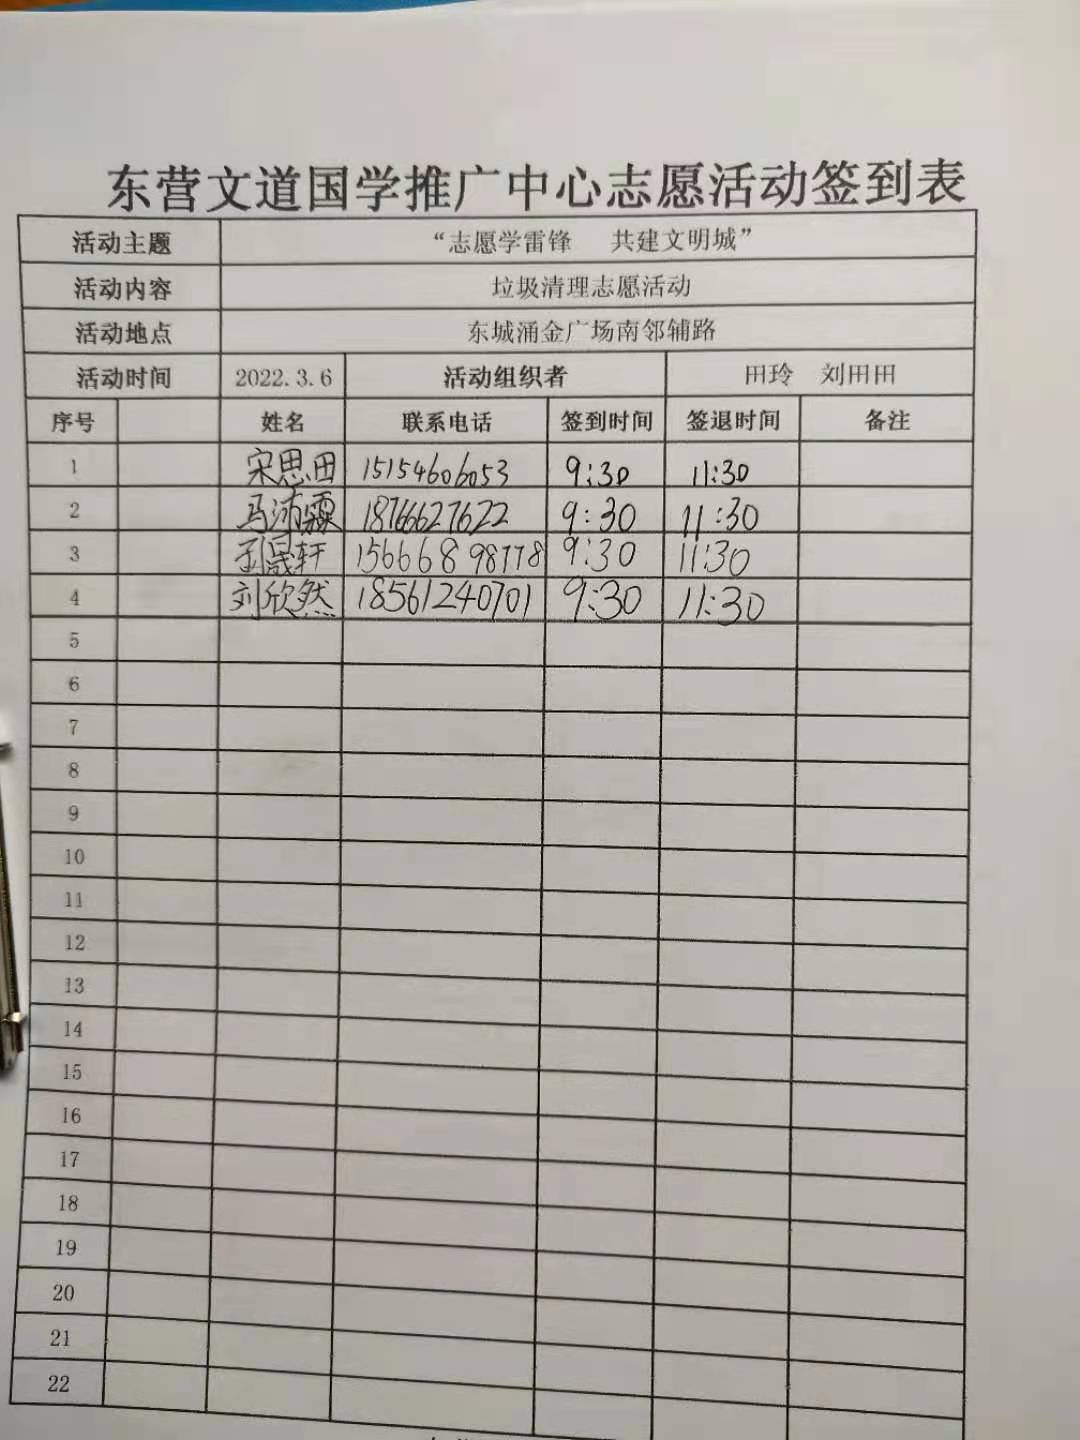 东营文道国学推广中心志愿活动签到表
活动主题 “志愿学雷锋 共建文明城”
活动内容 垃圾清理志愿活动
活动地点 东城涌金广场南邻辅路
活动时间 2022.3.6 活动组织者 田玲 刘田田
序号 姓名 联系电话 签到时间 签退时间 备注
1 宋思田 15154606053 9:30 11:30
2 马沛霖 18766627622 9:30 11:30
3 晟轩 15666898778 9:30 11:30
4 刘欣然 18561240701 9:30 11:30
5
6
7
8
9
10
11
12
13
14
15
16
17
18
19
20
21
22